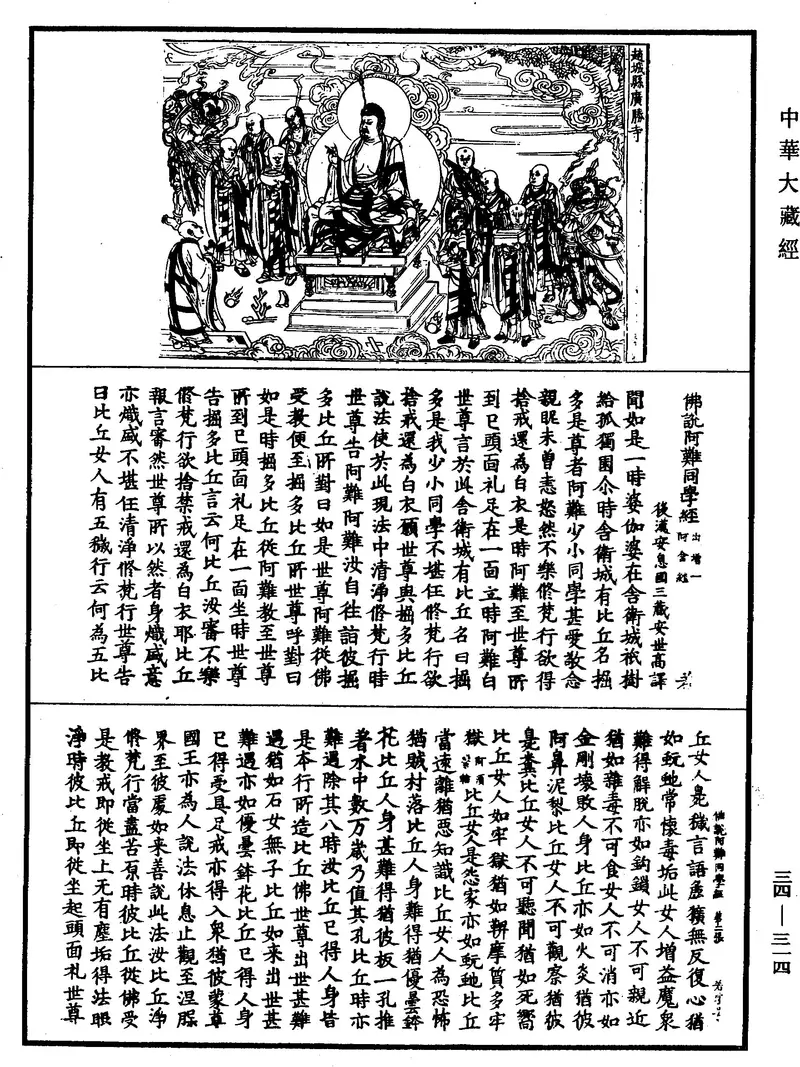 中華大藏經
三四—三一四
趙城縣廣勝寺
佛說阿難同學經 出增一阿含經
後漢安息國三藏安世高譯
聞如是一時婆伽婆在舍衛城祇樹
給孤獨園尒時舍衛城有比丘名掘
多是尊者阿難少小同學甚愛敬念
親眤未曾恚怒然不樂脩梵行欲得
捨戒還為白衣是時阿難至世尊所
到已頭面礼足在一面立時阿難白
世尊言於此舍衛城有比丘名曰掘
多是我少小同學不堪任脩梵行欲
捨戒還為白衣願世尊與掘多比丘
說法使於此現法中清淨脩梵行時
世尊告阿難阿難汝自往詣彼掘
多比丘所對曰如是世尊阿難從佛
受教便至掘多比丘所世尊呼對曰
如是時掘多比丘從阿難教至世尊
所到已頭面礼足在一面坐時世尊
告掘多比丘言云何比丘汝審不樂
脩梵行欲捨禁戒還為白衣耶比丘
報言審然世尊所以然者身熾盛意
亦熾盛不堪任清淨脩梵行世尊告
曰比丘女人有五穢行云何為五比
佛說阿難同學經 第二張
丘女人臭穢言語麁獷無反復心猶
如蚖虵常懷毒垢此女人增益魔衆
難得解脫亦如鉤鎖女人不可親近
猶如雜毒不可食女人不可消亦如
金剛壞敗人身比丘亦如火炎猶彼
阿鼻泥梨比丘女人不可觀察猶彼
臭糞比丘女人不可聽聞猶如死嚮
比丘女人如牢獄猶如鞞摩質多牢
獄 阿須倫 比丘女人是怨家亦如蚖虵比丘
當遠離猶惡知識比丘女人為恐怖
猶賊村落比丘人身難得猶優曇鉢
花比丘人身甚難得猶彼板一孔推
著水中數万歲乃值其孔比丘時亦
難遇除其八時汝比丘已得人身皆
是本行所造比丘佛世尊出世甚難
遇猶如石女無子比丘如來出世甚
難遇亦如優曇鉢花比丘已得人身
已得受具足戒亦得入衆猶彼蒙尊
國王亦為人說法休息止觀至涅槃
界至彼處如来善說此法汝比丘淨
脩梵行當盡苦原時彼比丘從佛受
是教戒即從坐上无有塵垢得法眼
淨時彼比丘即從坐起頭面礼世尊